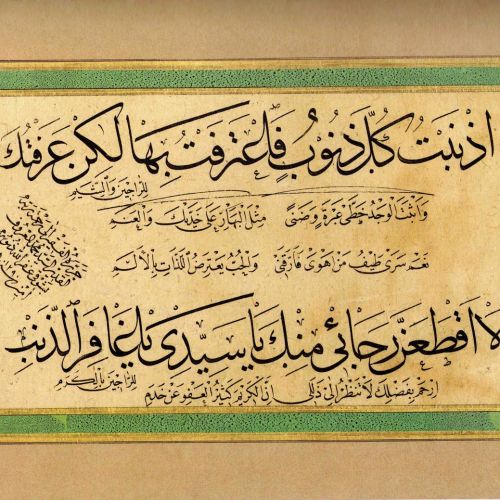 اذنبت كل ذنوب فاعترفت بها لكن عرفتك
للراجين
واثبت الوجد خطي عبرة وضنى مثل البهار على خديك والعنم
نعم سرى طيف من اهوى فارقني والحب يعترض اللذات بالالم
لا اقطعن رجائي منك يا سيدي يا غافر الذنب
للراجين بالكرم
ارحم بفضلك لا تنظر الى ذللي ان الكريم كثير العفو عن خدم